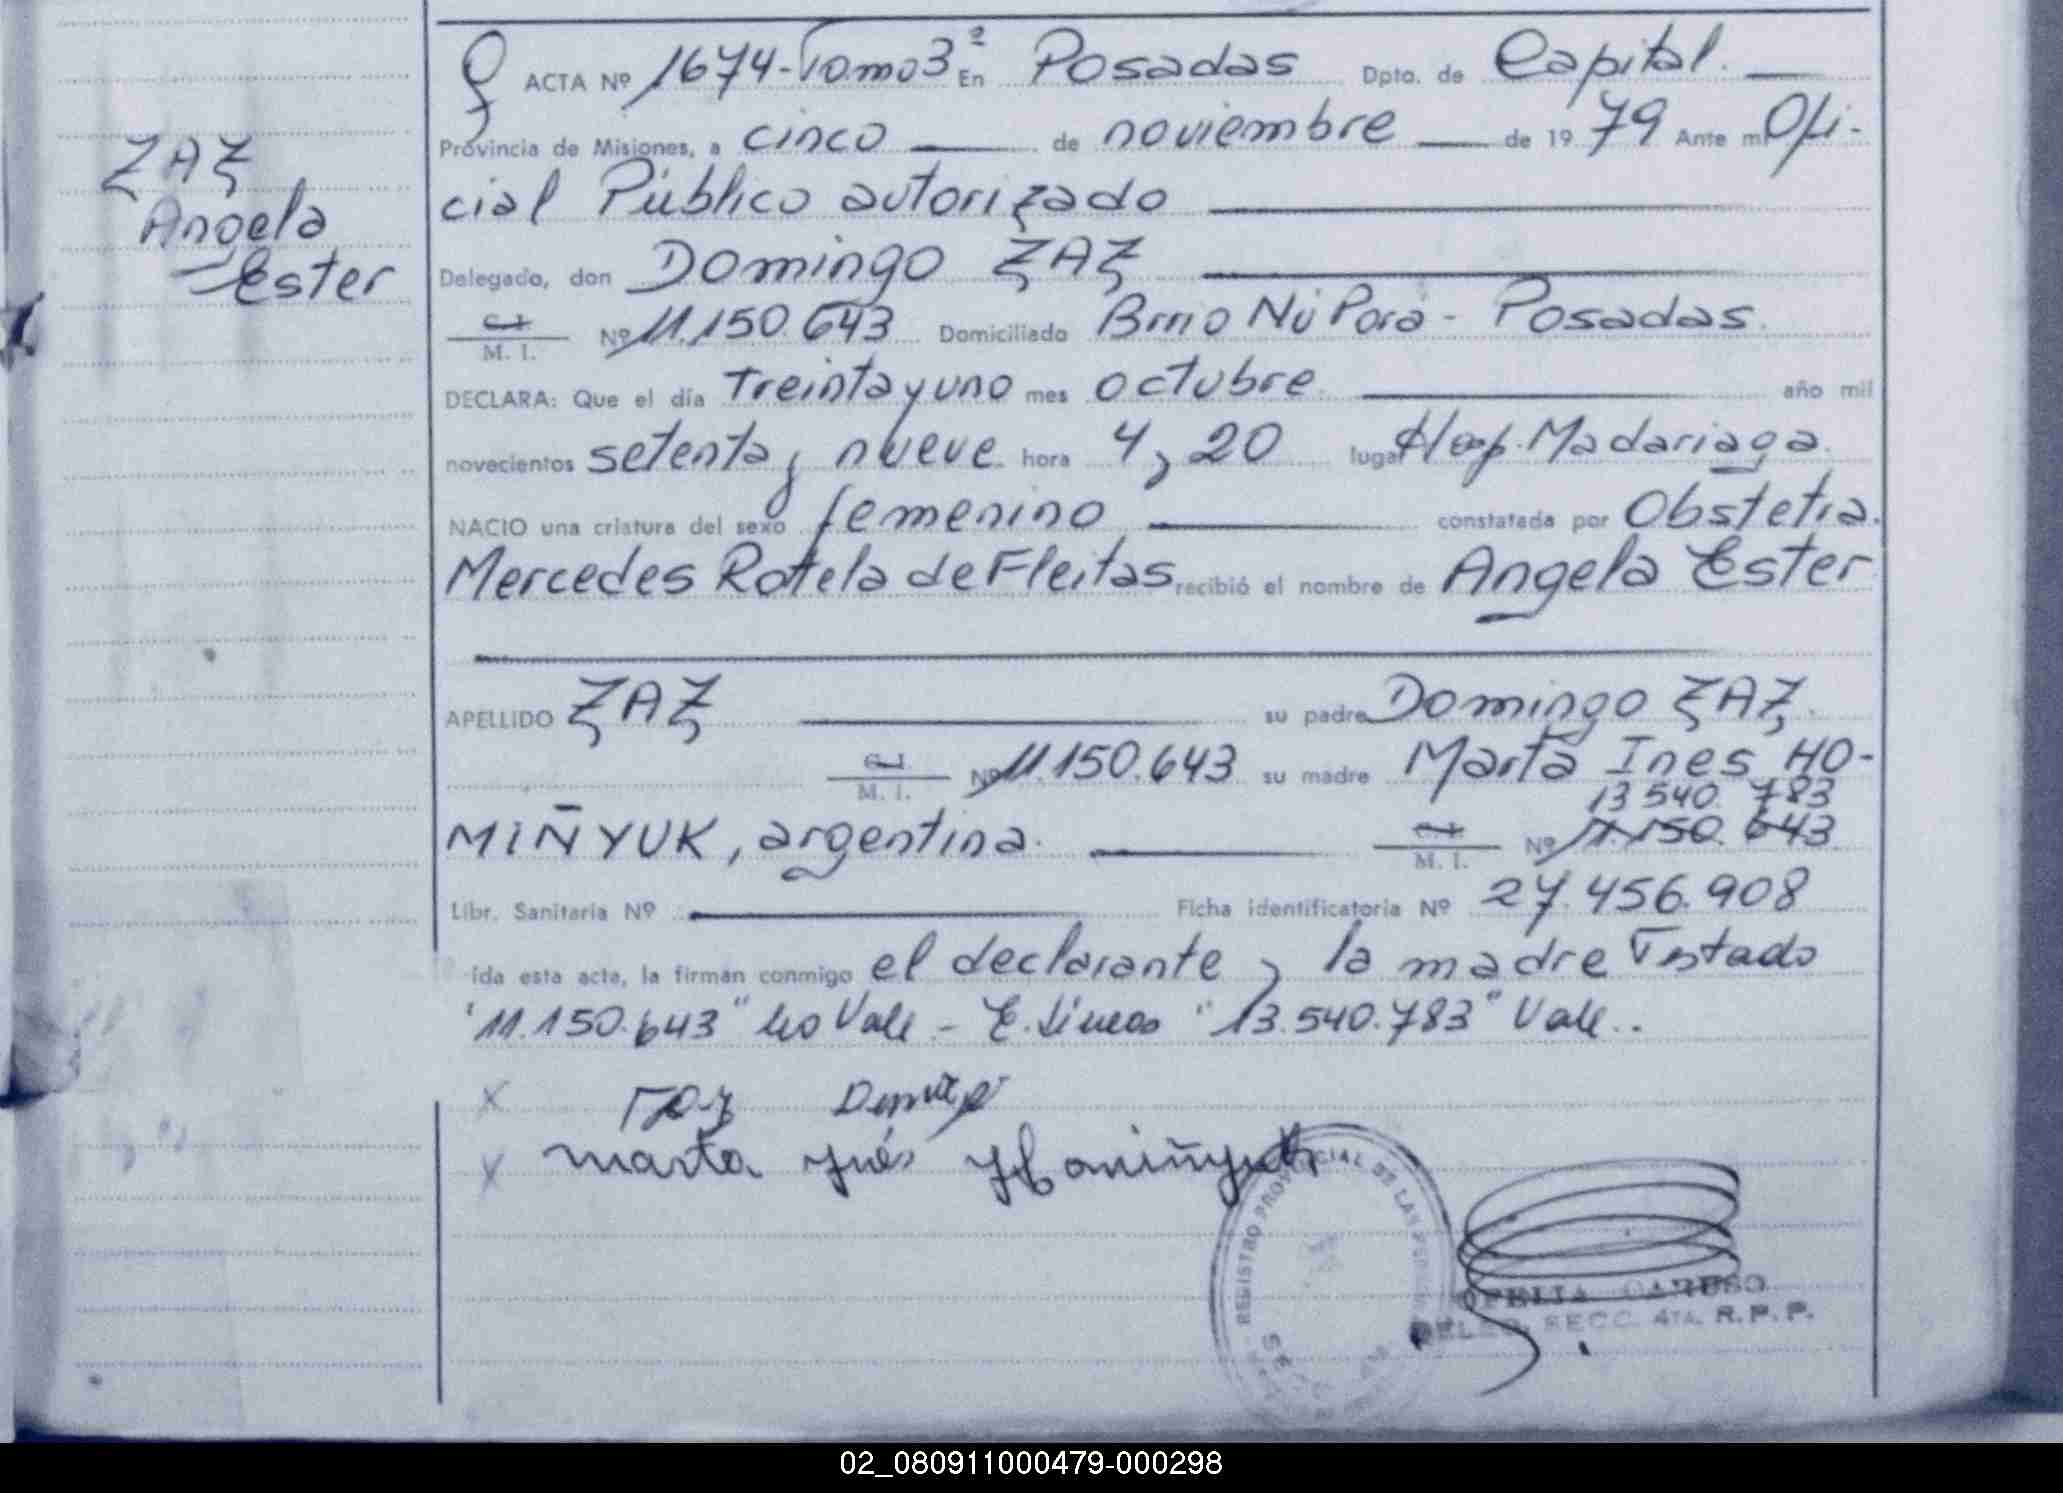 ZAZ
Angela
Ester
ACTA Nº 1674-Tomo3º En Posadas Dpto. de Capital.
Provincia de Misiones, a cinco de noviembre de 1979 Ante mi Ofi-
cial Público autorizado
Delegado, don Domingo ZAZ
C.I. M. I. Nº 11.150.643 Domiciliado Brrio Ñú Porá - Posadas.
DECLARA: Que el día Treinta y uno mes octubre. año mil
novecientos setenta y nueve hora 4,20 lugar Hosp. Madariaga.
NACIO una criatura del sexo femenino constatada por Obstetra.
Mercedes Rotela de Fleitas recibió el nombre de Angela Ester
APELLIDO ZAZ su padre Domingo ZAZ.
C.I. M. I. Nº 11.150.643 su madre Marta Ines HO-
13 540. 783
MIÑYUK, argentina. C.I. M. I. Nº 11.150.643
Libr. Sanitaria Nº Ficha identificatoria Nº 27.456.908
ida esta acta, la firman conmigo el declarante y la madre Testado
"11.150.643" No Vale - E. Líneas "13.540.783" Vale..
X Zaz
X Marta Inés Hominyuk
REGISTRO PROVINCIAL DE LAS PERSONAS
OFELIA CARUSO
DELEG. SECC. 4TA. R.P.P.
02_080911000479-000298